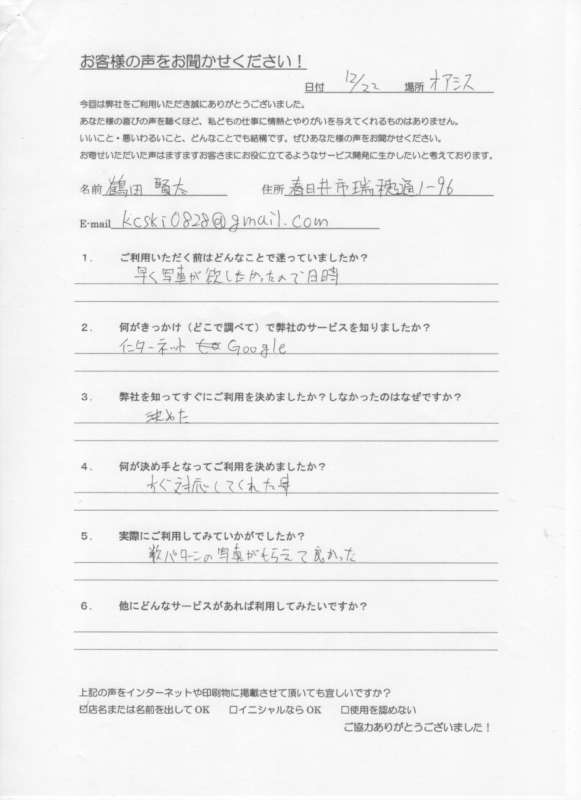 お客様の声をお聞かせください！
日付 12/22 場所 オアシス
今回は弊社をご利用いただき誠にありがとうございました。
あなた様の喜びの声を聴くほど、私どもの仕事に情熱とやりがいを与えてくれるものはありません。
いいこと・悪いわるいこと、どんなことでも結構です。ぜひあなた様の声をお聞かせください。
お寄せいただいた声はますますお客さまにお役に立てるようなサービス開発に生かしたいと考えております。
名前 鶴田 賢太 住所 春日井市瑞穂通1-96
E-mail kcski0828@gmail.com
1． ご利用いただく前はどんなことで迷っていましたか？
早く写真が欲しかったので日時
2． 何がきっかけ（どこで調べて）で弊社のサービスを知りましたか？
インターネット Google
3． 弊社を知ってすぐにご利用を決めましたか？しなかったのはなぜですか？
決めた
4． 何が決め手となってご利用を決めましたか？
すぐ対応してくれた事
5． 実際にご利用してみていかがでしたか？
数パターンの写真がもらえて良かった
6． 他にどんなサービスがあれば利用してみたいですか？
上記の声をインターネットや印刷物に掲載させて頂いても宜しいですか？
☑店名または名前を出して OK □イニシャルなら OK □使用を認めない
ご協力ありがとうございました！